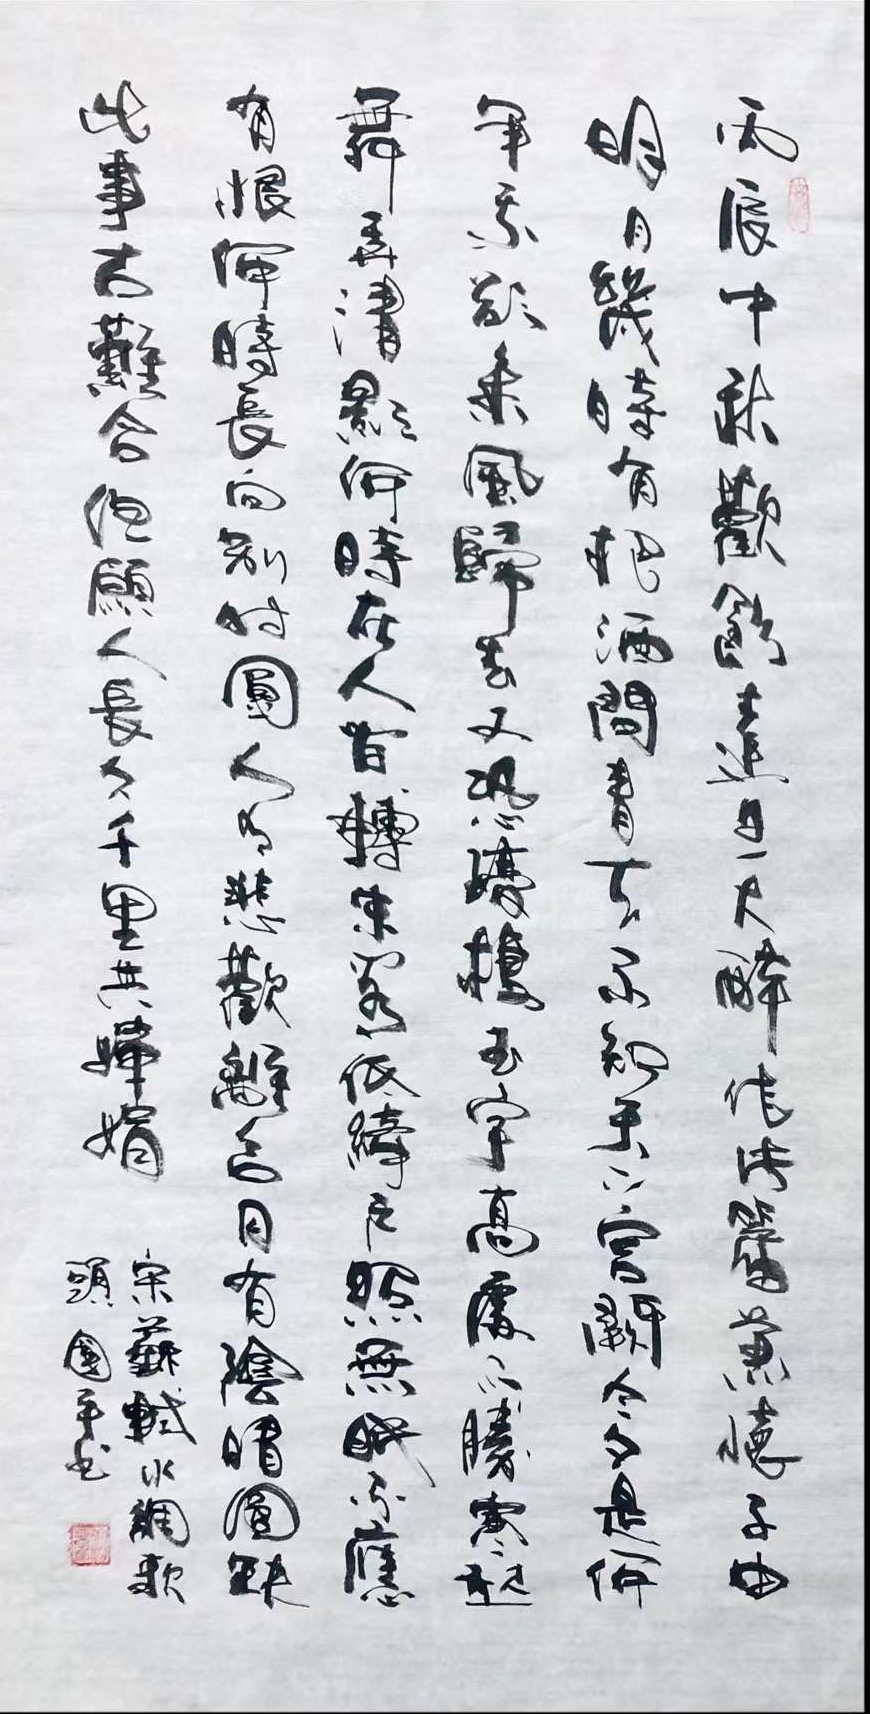 丙辰中秋歡飲達旦大醉作此篇兼懷子由
明月幾時有把酒問青天不知天上宮闕今夕是何
年我欲乘風歸去又恐瓊樓玉宇高處不勝寒起
舞弄清影何時在人間轉朱閣低綺戶照無眠不應
有恨何時長向別時圓人有悲歡離合月有陰晴圓缺
此事古難全但願人長久千里共嬋娟
宋蘇軾水調歌
頭 國平書